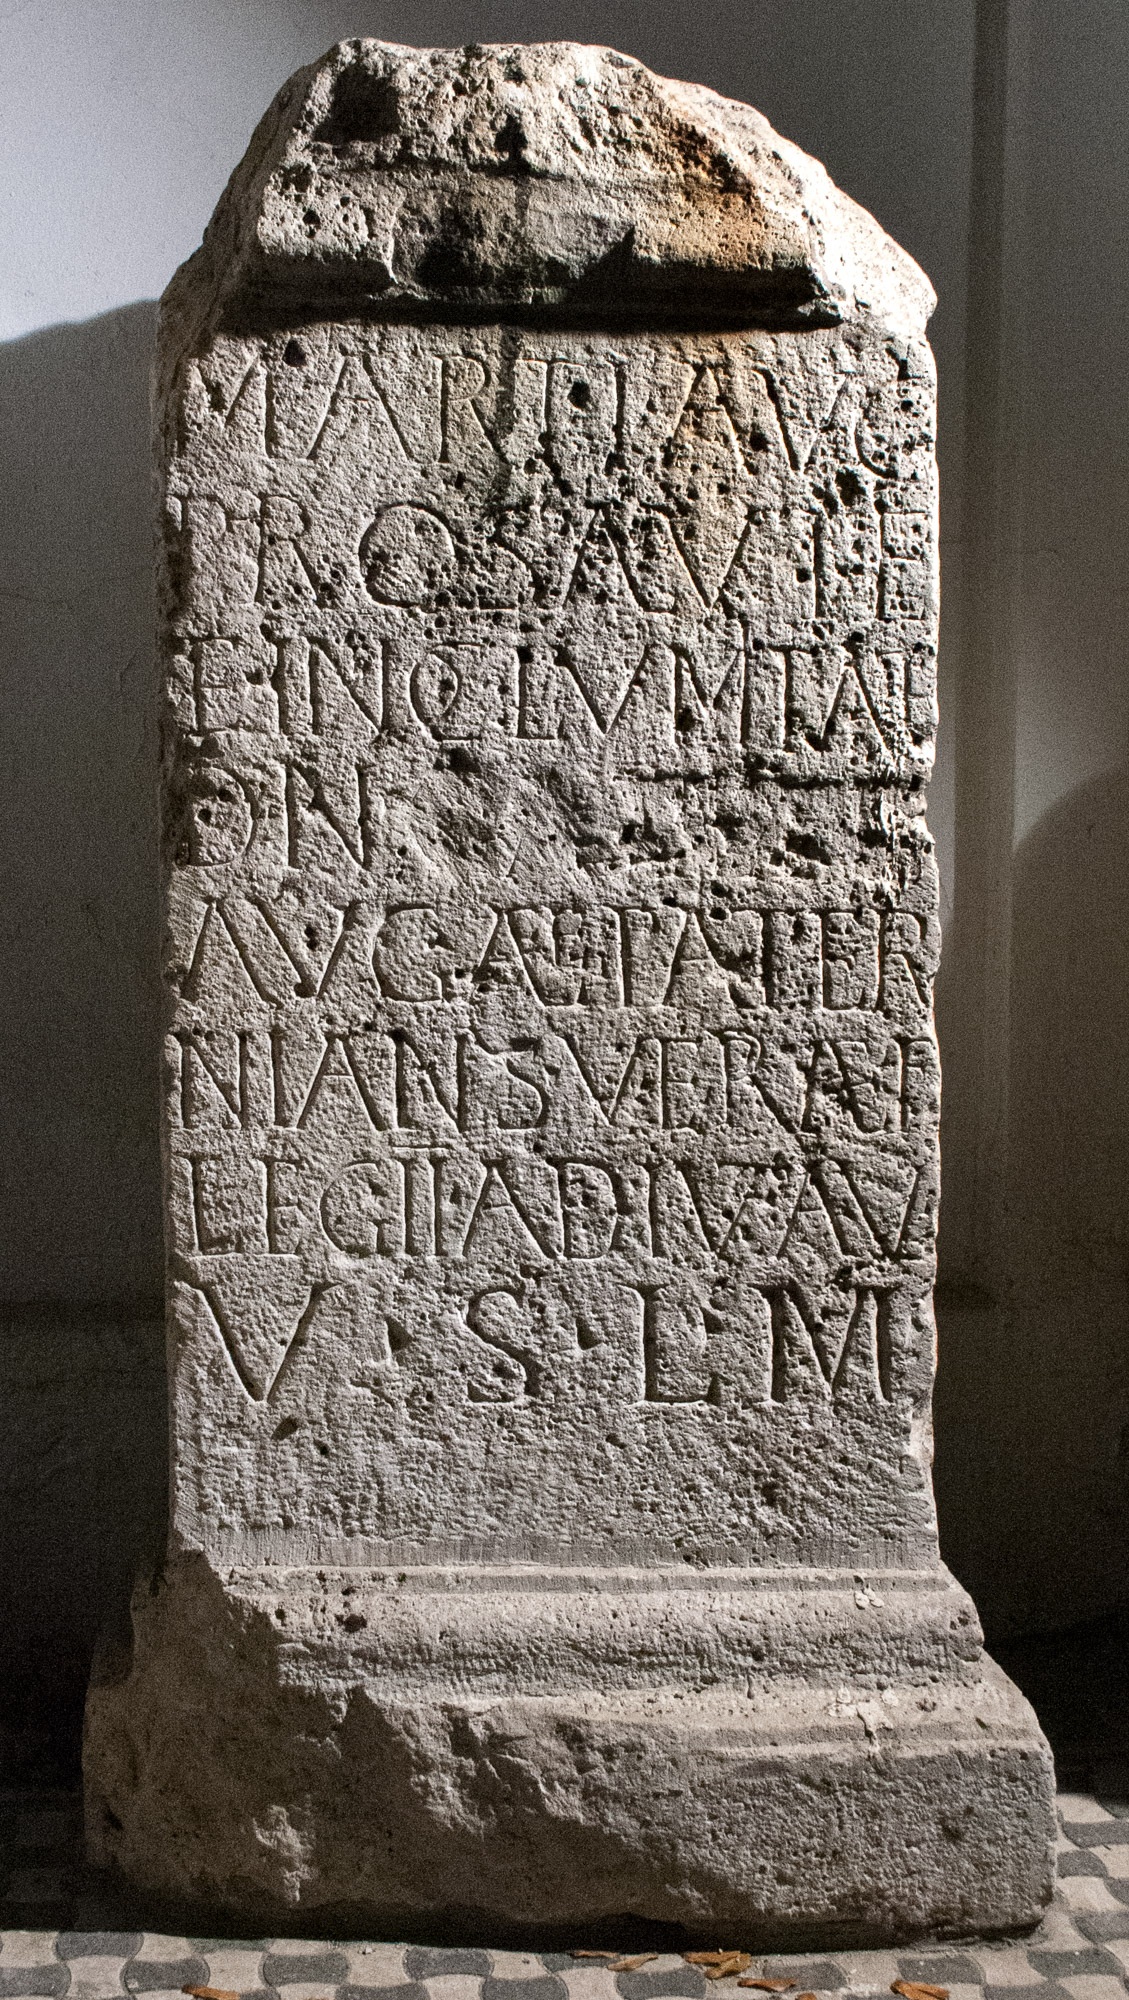 MARTI AVG
PRO SALVTE
E INCOLVMITATE
D N
AVG AEL PATER
NIANS VE PRAEF
LEG II ADIVT AV
V · S · L · M